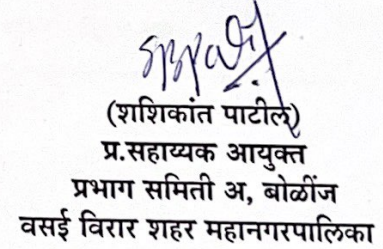 (शशिकांत पाटील)
प्र.सहाय्यक आयुक्त
प्रभाग समिती अ, बोळींज
वसई विरार शहर महानगरपालिका